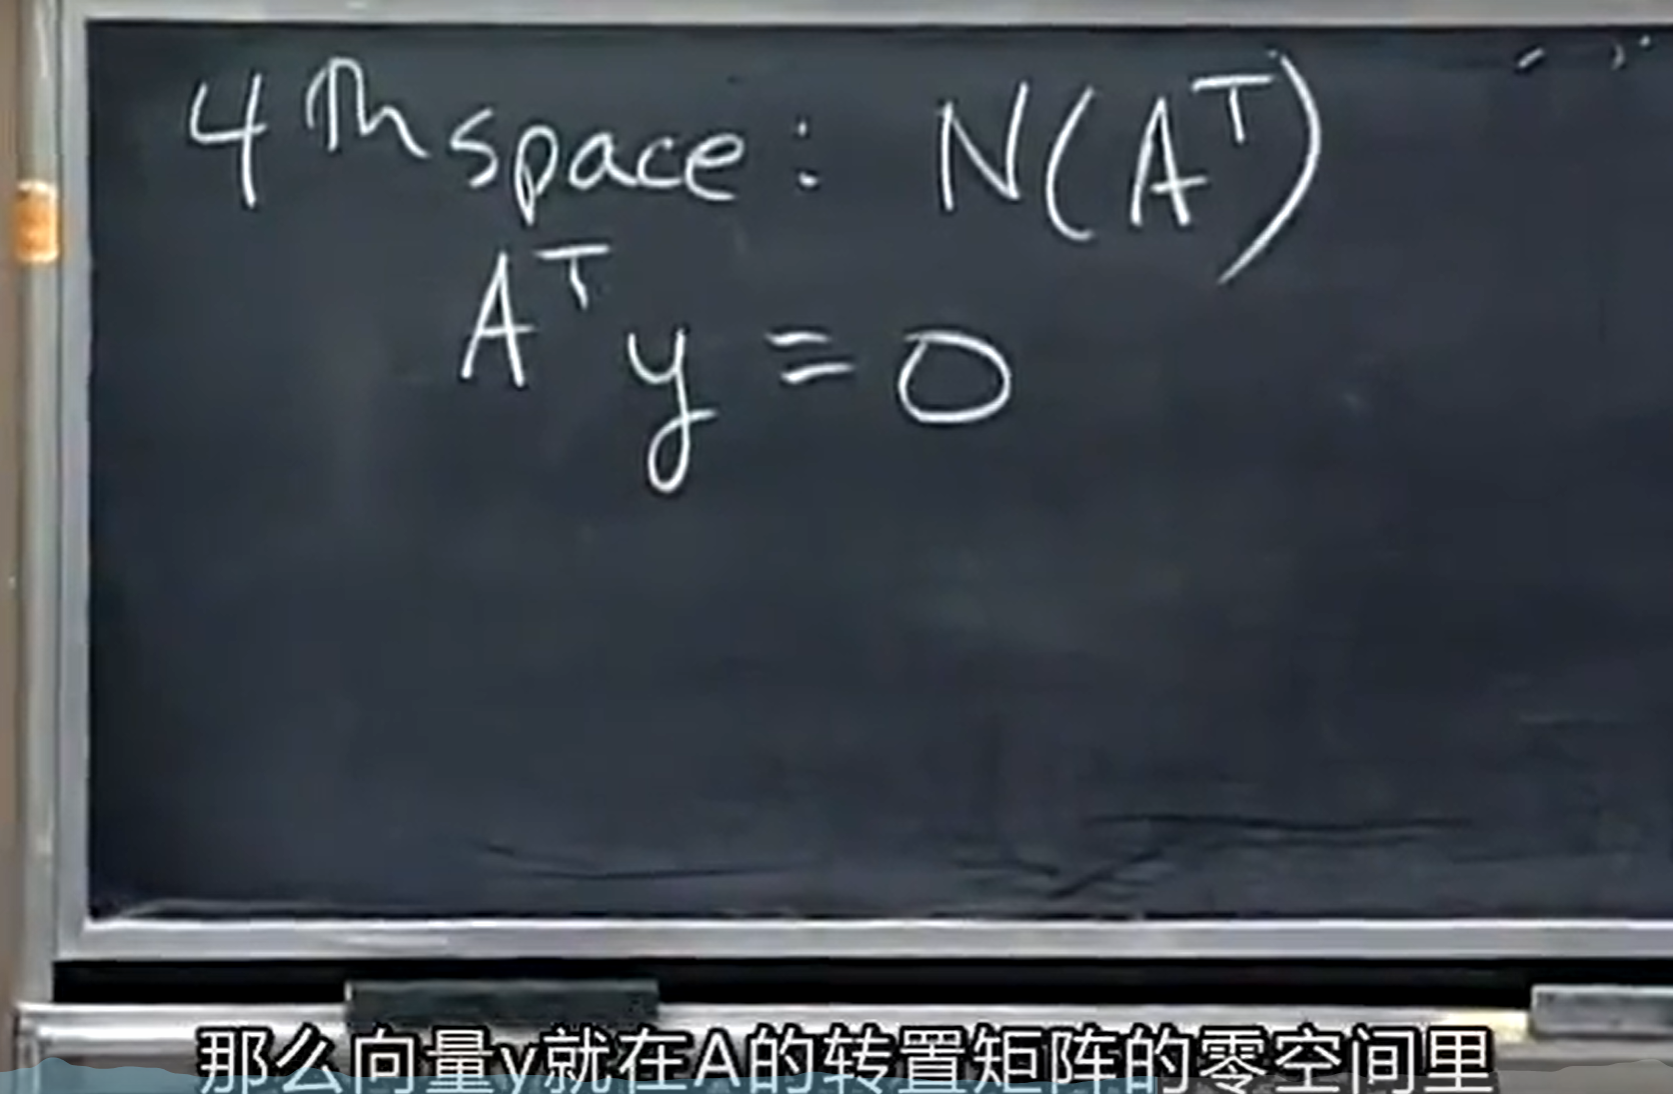 4th space: N(Aᵀ)
Aᵀy = 0
那么向量y就在A的转置矩阵的零空间里